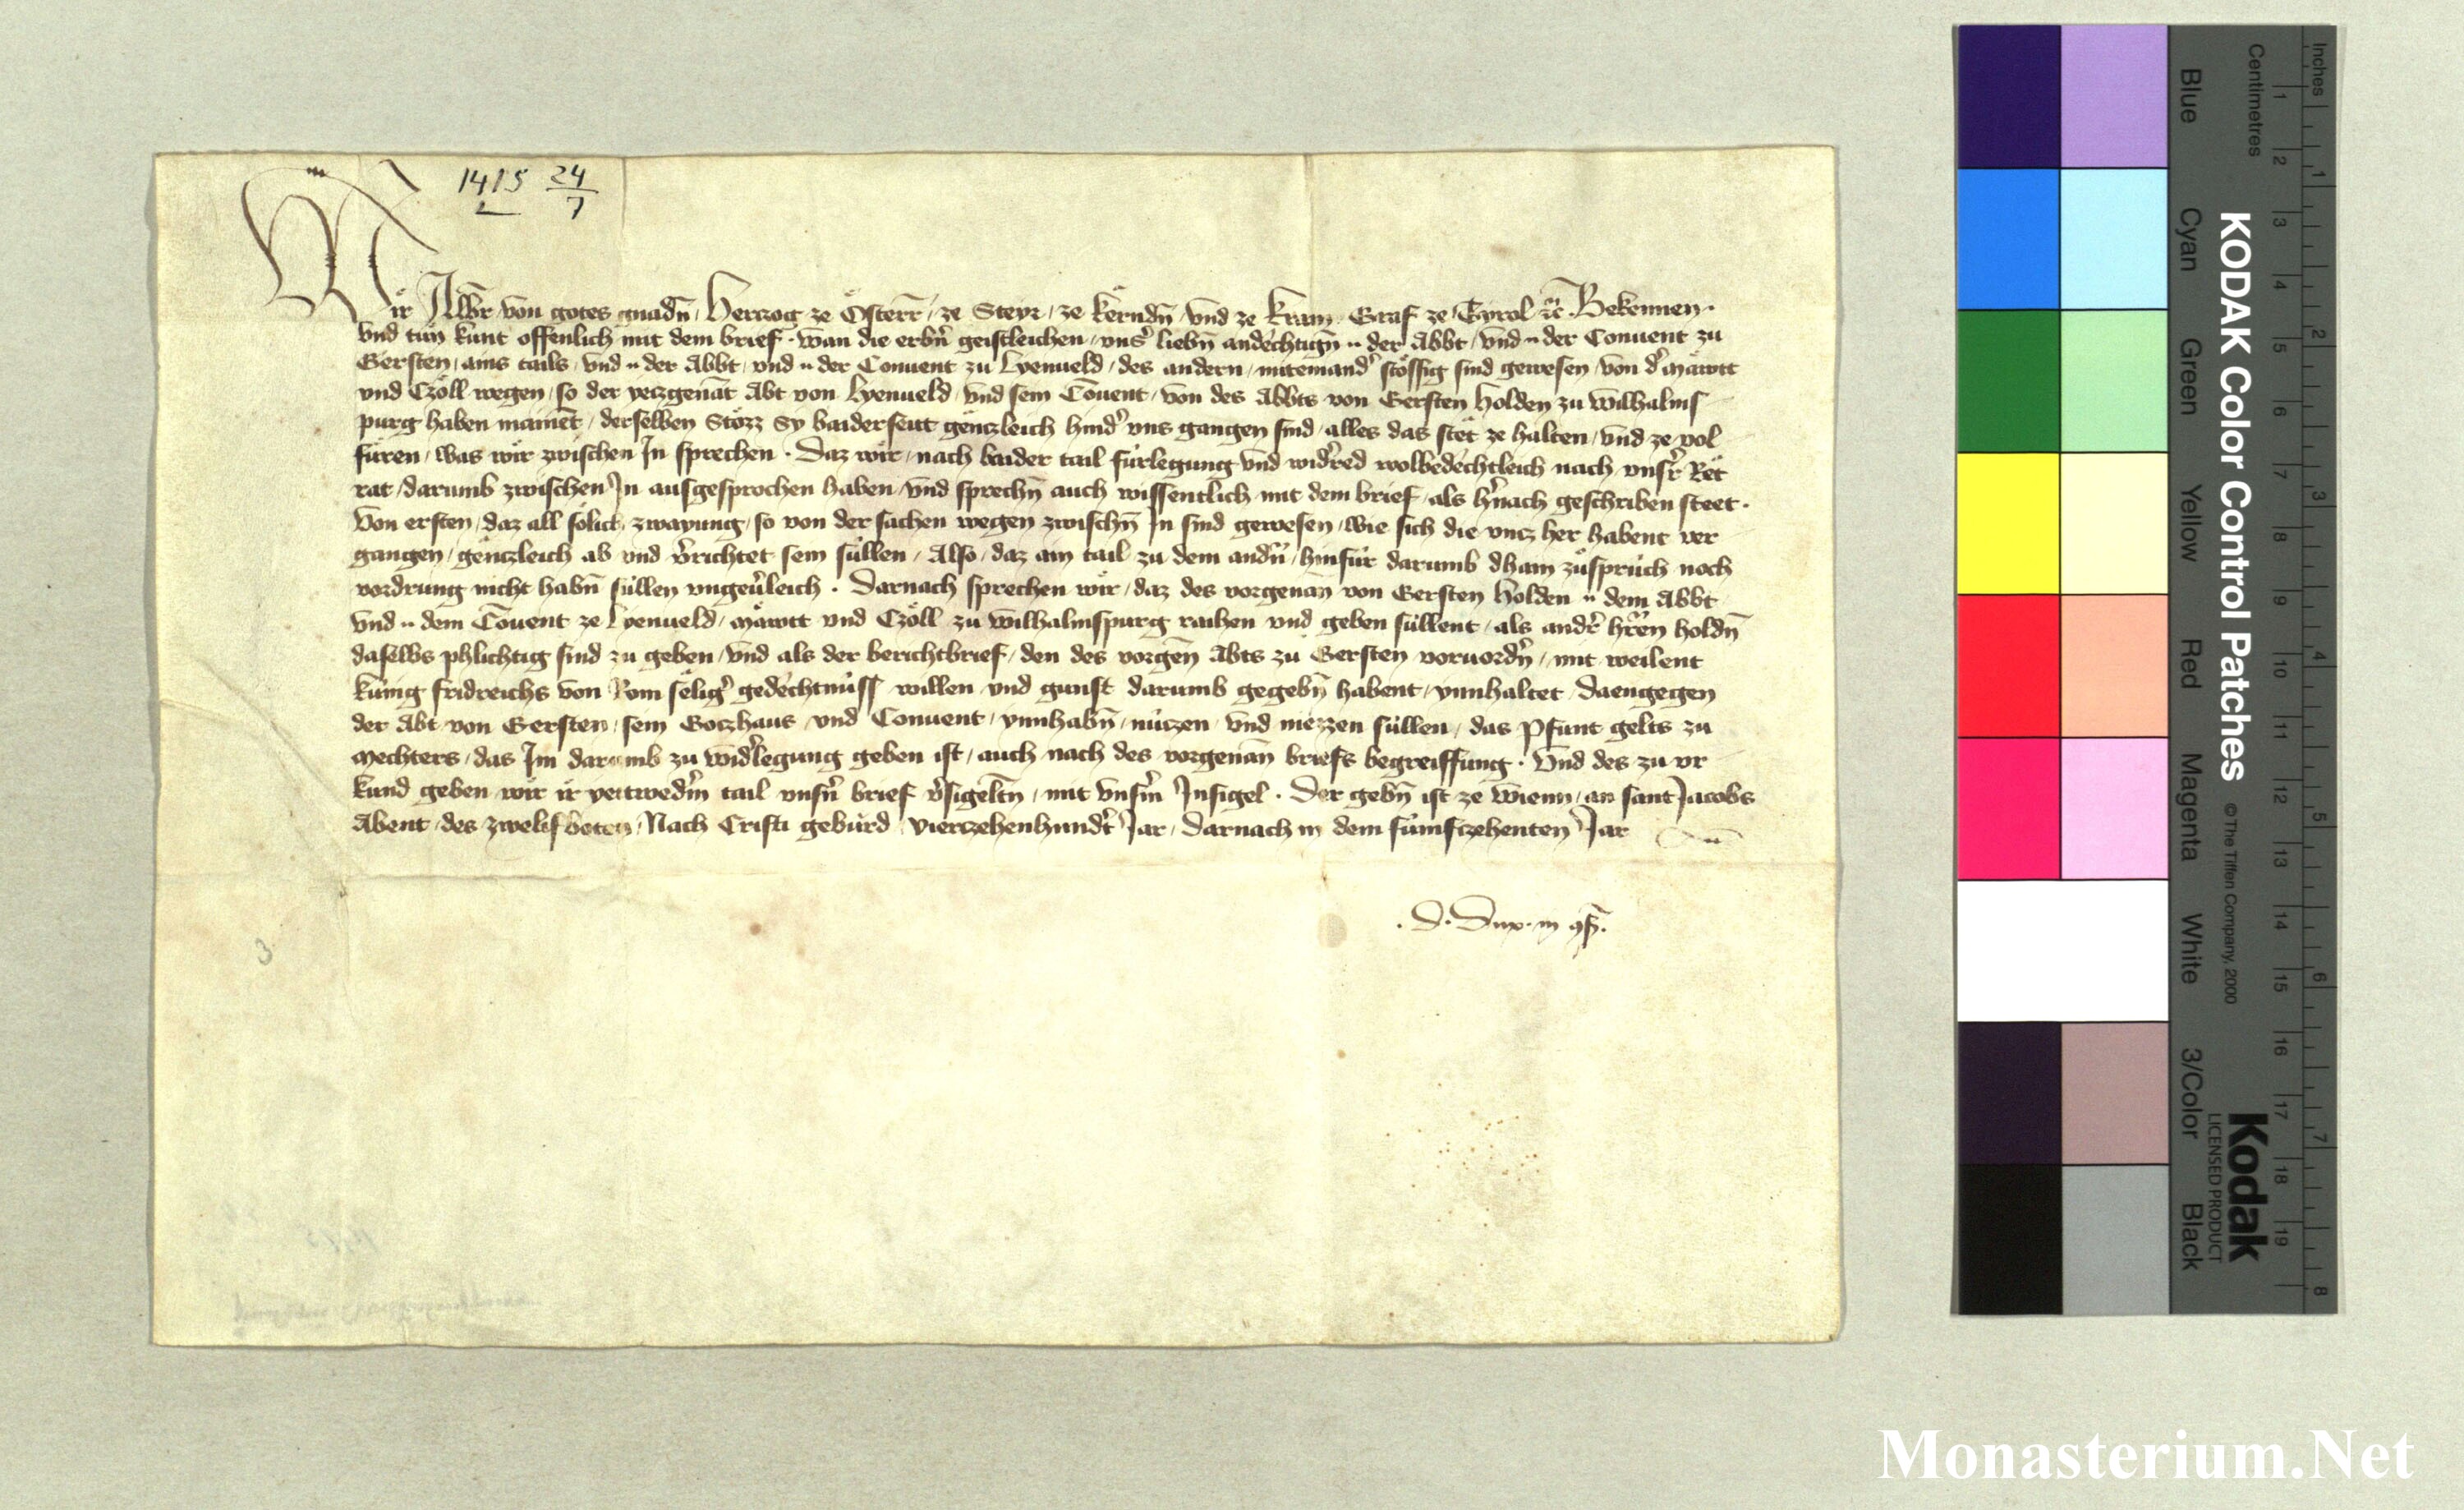 1415 24/7
Wir Albr̄ von gotes gnadn̄ / Herczog ze Österr̄ / ze Steyr / ze Kërndn̄ / vnd ze Krain / Graf ze Tyrol ꝛc̄. Bekennen ·
vnd tůn kunt offenlich mit dem brief · wan die erbn̄ geistleichen / vnsˀ liebn̄ andëchtign̄ ·· der Abbt / vnd ·· der Conuent zu
Gersten / ains tails / vnd ·· der Abbt / vnd ·· der Conuent zu Lyenueld / des andern / miteinandˀ stössig sind gewesen / von dˀ Mäwtt
vnd Czöll wegen / so der yeczgenāt Abt von Lyenueld / vnd sein Cōuent / von des Abbts von Gersten Holden zu Wilhalms
purg haben mainēt / derselben Stözz Sy baiderseitt gënczleich hindˀ vns gangen sind / alles das stët ze halten / vnd ze vol
füren / was wir zwischen In sprechen · Daz wir / nach baider tail fürlegung vnd widˀred wolbedëchtleich nach vnsˀr Rët
rat / darumb zwischen In ausgesprochen haben / vnd sprechn̄ auch wissentlich mit dem brief / als hˀnach geschriben steet ·
Von ersten / daz all sölich zwayung / so von der sachen wegen zwischn̄ In sind gewesen / wie sich die vncz her habent ver
gangen / gënczleich ab vnd vˀrichtet sein süllen / Also / daz ain tail zu dem andˀn / hinfür darumb dhain zůsprüch noch
vordrung nicht habn̄ süllen vngeuˀleich · Darnach sprechen wir / daz des vorgenan̄ von Gersten Holden ·· dem Abbt
vnd ·· dem Cōuent ze Lyenueld / Mäwtt vnd Czöll zu Wilhalmspurg raihen vnd geben süllent / als andˀr hˀren holdn̄
daselbs phlichtig sind zu geben / vnd als der berichtbrief / den des vorgen̄ Abts zu Gersten voruordˀn / mit weilent
künig fridreichs von Rom sëligˀ gedëchtnüss willen vnd gunst darumb gegebn̄ habent / ynnhaltet / Daengegen
der Abt von Gersten / sein Goczhaus / vnd Conuent / ynnhabn̄ / nüczen / vnd niezzen süllen / das Pfunt gelts zu
Mechters / das Im darumb zu widˀlegung geben ist / auch nach des vorgenan̄ briefs begreiffung · Vnd des zu vr
kund geben wir ir yettwedˀm tail vnsˀn brief vˀsigeltn̄ / mit vnsˀm Insigel · Der gebn̄ ist ze Wienn / an sant Jacobs
Abent / des zwelifboten / Nach Cristi gebürd / vierczehenhundˀt Jar / Darnach in dem fümfczehenten Jar
· D · Dux · in ꝯſ̄ ·
3
KODAK Color Control Patches © The Tiffen Company, 2000 Kodak LICENSED PRODUCT
Inches 1 2 3 4 5 6 7 8
Centimetres 1 2 3 4 5 6 7 8 9 10 11 12 13 14 15 16 17 18 19
Blue Cyan Green Yellow Red Magenta White 3/Color Black
Monasterium.Net